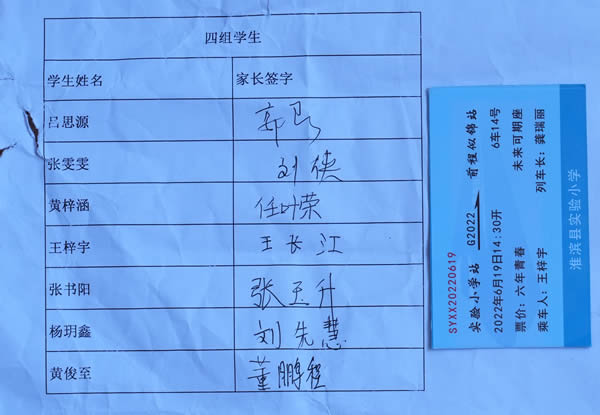 四组学生
学生姓名 家长签字
吕思源
张雯雯 刘德
黄梓涵 任叶荣
王梓宇 王长江
张书阳 张玉升
杨玥鑫 刘先慧
黄俊至 董鹏程
SYXX20220619
实验小学站 G2022 前程似锦站
2022年6月19日14:30开 6车14号
票价:六年青春 未来可期座
乘车人:王梓宇 列车长:龚瑞丽
淮滨县实验小学